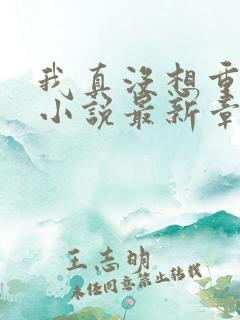 我真没想重
小说最新章
王志明
未经同意禁止转载